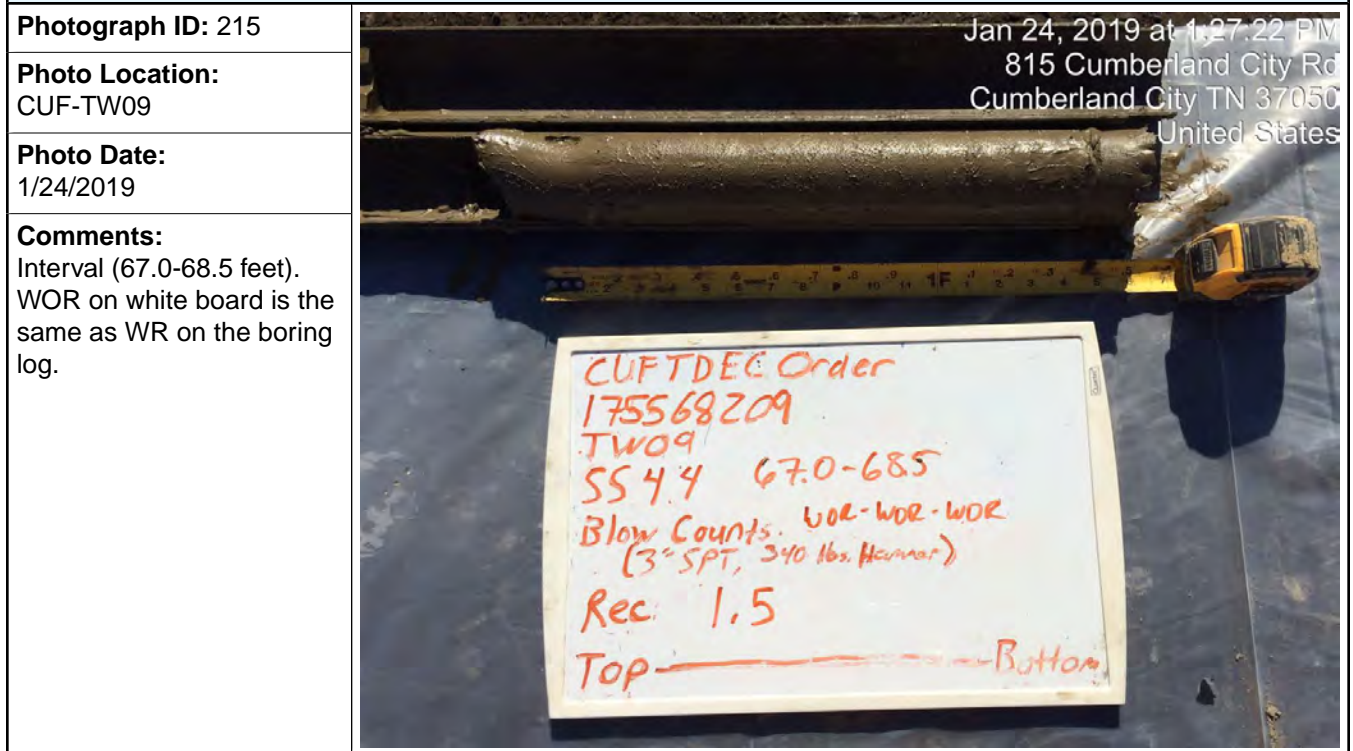 Photograph ID: 215
Photo Location:
CUF-TW09
Photo Date:
1/24/2019
Comments:
Interval (67.0-68.5 feet).
WOR on white board is the
same as WR on the boring
log.
Jan 24, 2019 at 1:27:22 PM
815 Cumberland City Rd
Cumberland City TN 37050
United States
CUF TDEC Order
175568209
TW09
SS44 67.0-68.5
Blow Counts. WOR-WOR-WOR
(3" SPT, 340 lbs. Hammer)
Rec: 1.5
Top Bottom